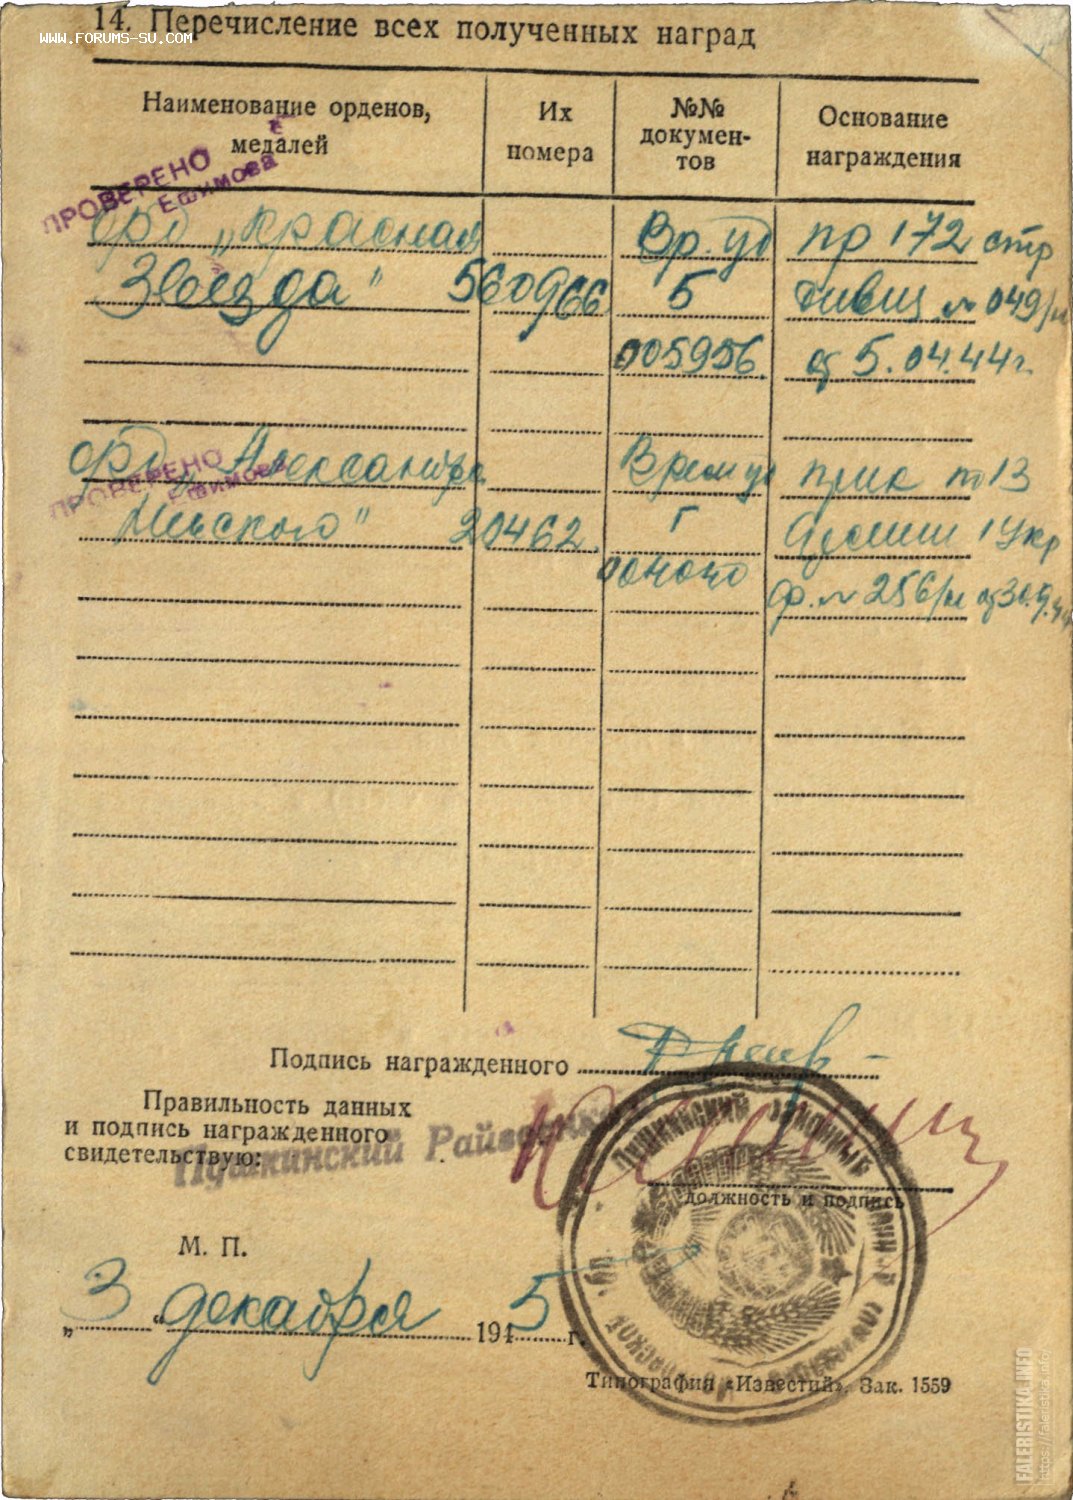 14. Перечисление всех полученных наград
WWW.FORUMS-SU.COM
Наименование орденов, медалей
Их номера
№№ докумен-
тов
Основание награждения
ПРОВЕРЕНО
Ефимова
орд „Красная Вр. уд пр 172 стр
Звезда" 560966 Б дивиз. № 049/н
005956. от 5.04.44г.
ПРОВЕРЕНО
Ефимова
орд. „Александра прик по 13
Невского" 20462. Г Армии 1 Укр
ф. № 256/н от 30.9.44
Подпись награжденного
Правильность данных
и подпись награжденного
свидетельствую:
Пушкинский Райвоенком
должность и подпись
М. П.
„3" декабря 1945 г.
Типография «Известий». Зак. 1559
FALERISTIKA.INFO
https://faleristika.info/